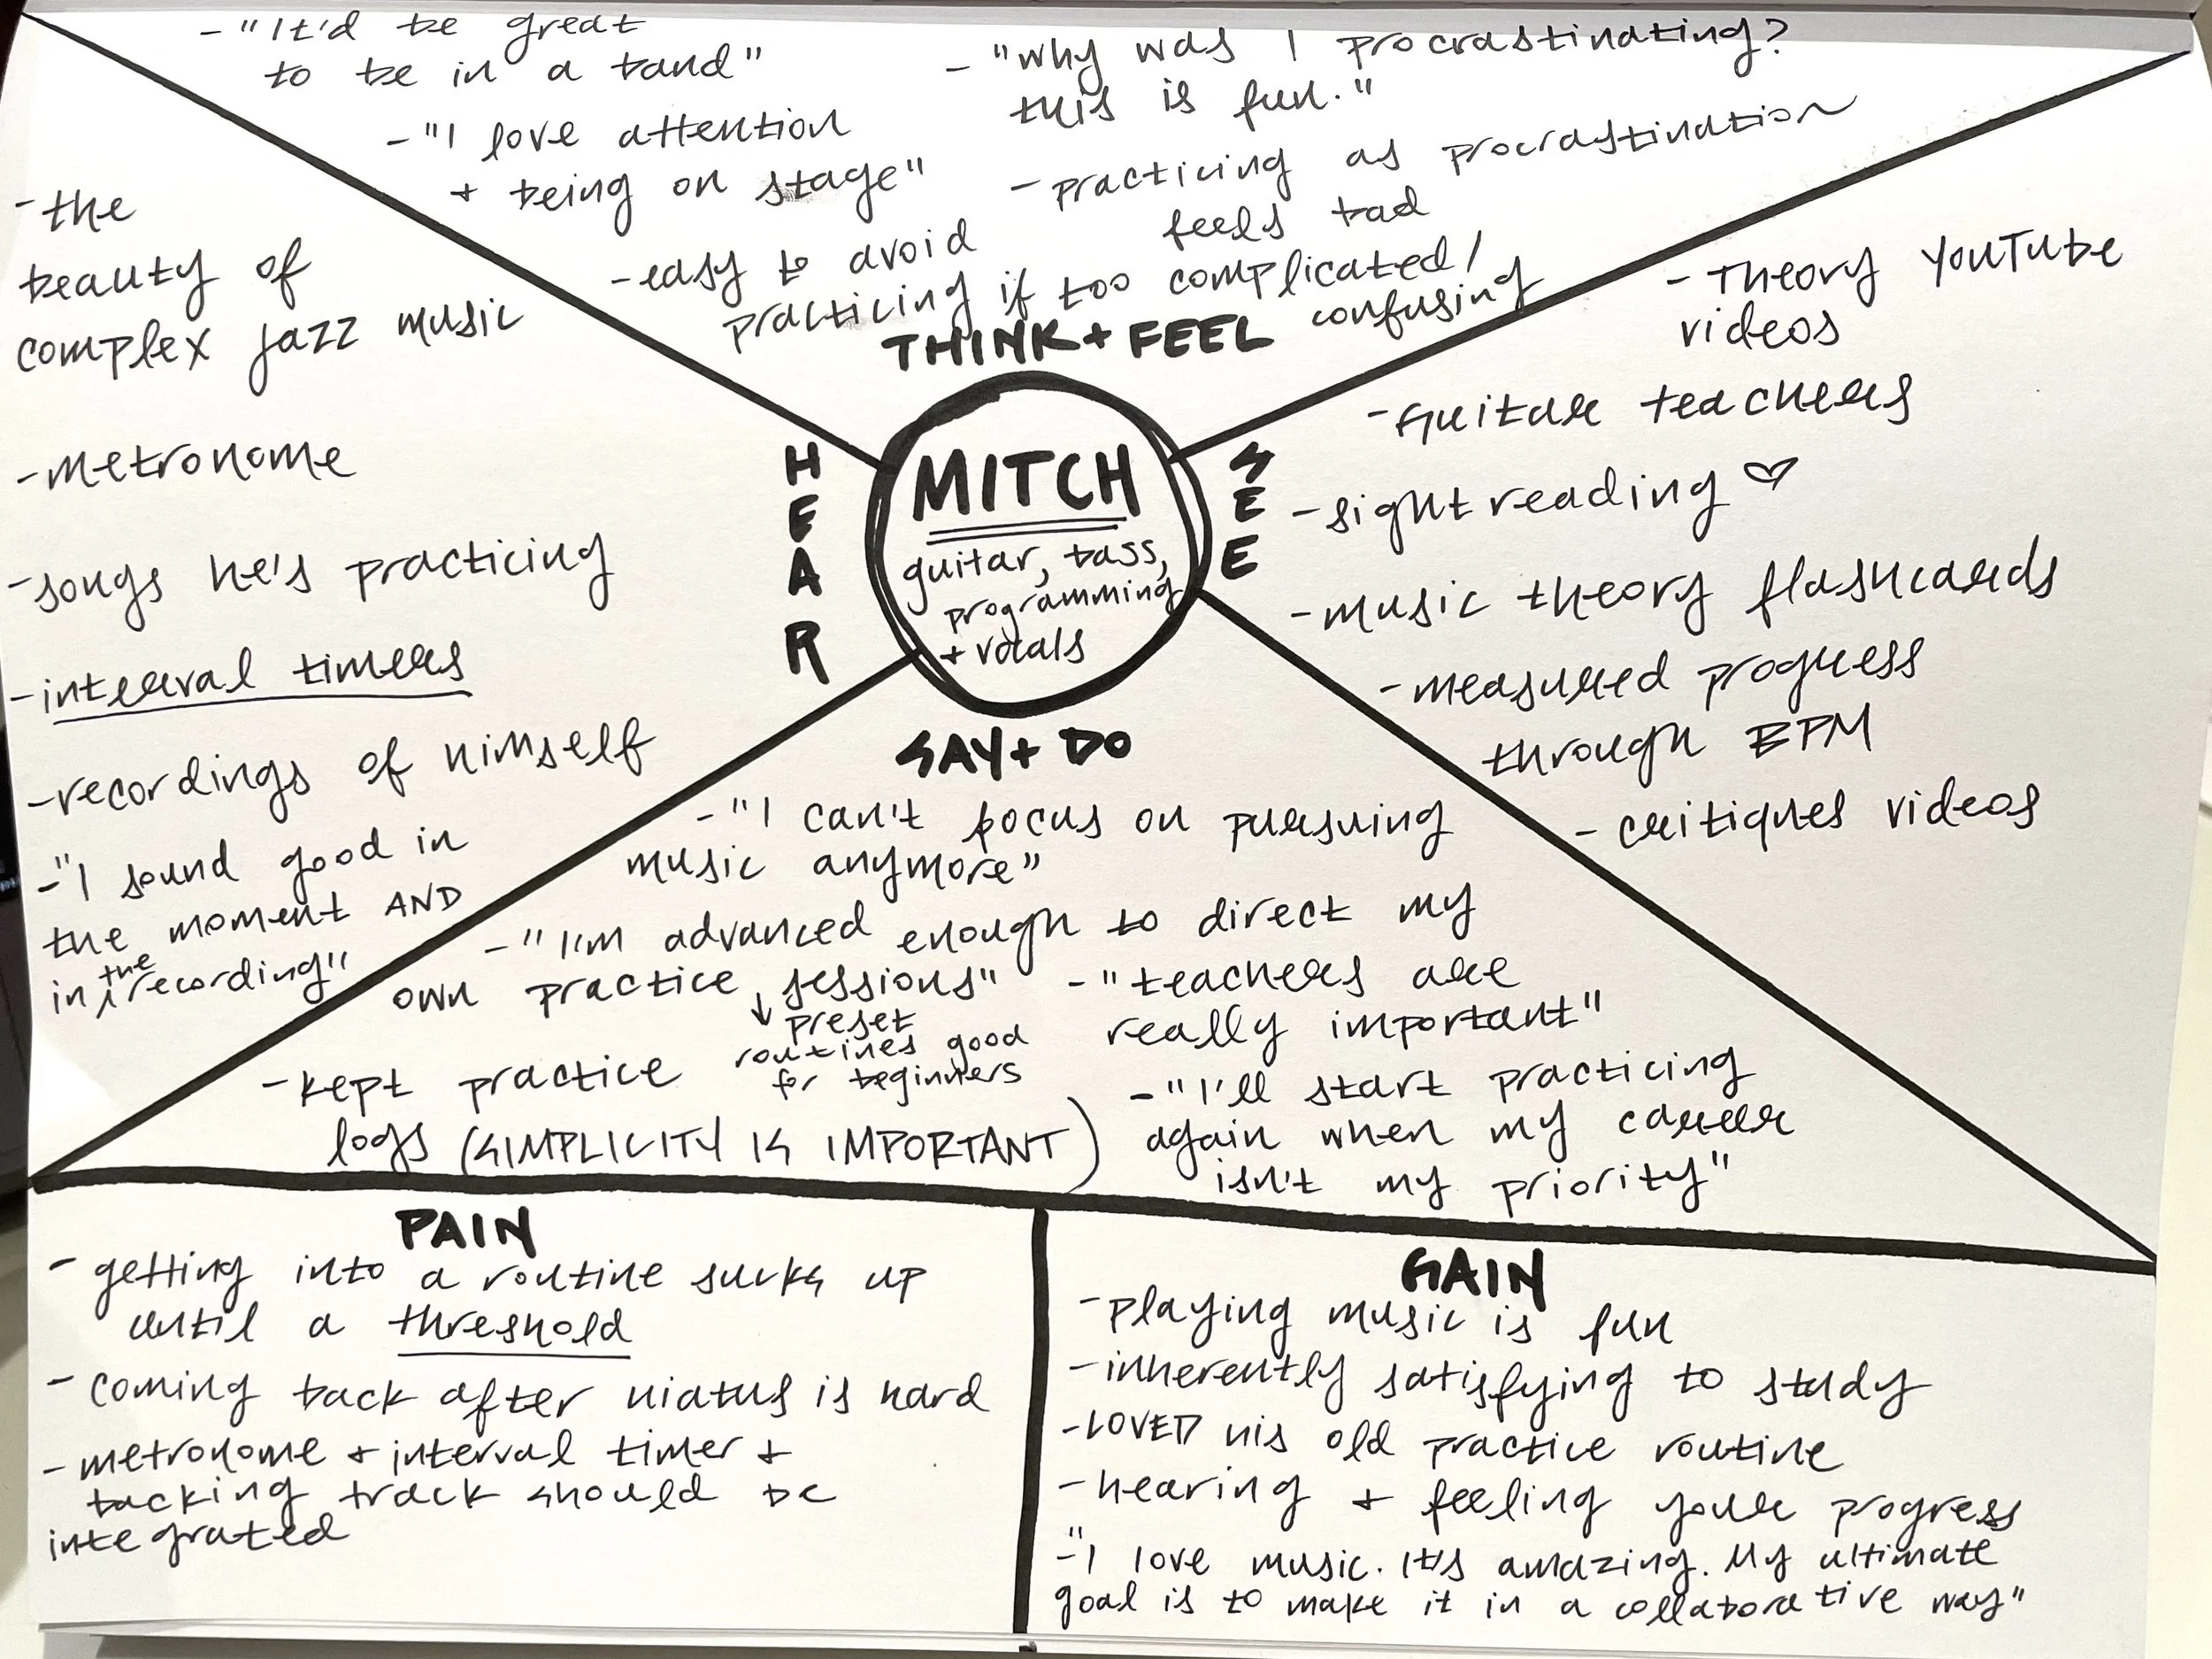 -"It'd be great
to be in a band"
-"I love attention
+ being on stage"
-easy to avoid
practicing if too complicated/
confusing
- "why was I procrastinating?
this is fun."
-practicing as procrastination
feels bad
THINK + FEEL
-the
beauty of
complex jazz music
-metronome
-songs he's practicing
-interval timers
-recordings of himself
-"I sound good in
the moment AND
in the recording"
HEAR
MITCH
guitar, bass,
programming
+ vocals
SEE
- Theory YouTube
videos
-Guitar teachers
-sight reading ♡
-music theory flashcards
-measured progress
through BPM
- critiques videos
SAY + DO
-"I can't focus on pursuing
music anymore"
-"I'm advanced enough to direct my
own practice sessions"
↓ preset
routines good
for beginners
-kept practice
logs (SIMPLICITY IS IMPORTANT)
-"teachers are
really important"
-"I'll start practicing
again when my career
isn't my priority"
PAIN
- getting into a routine sucks up
until a threshold
- coming back after hiatus is hard
- metronome + interval timer +
backing track should be
integrated
GAIN
-playing music is fun
-inherently satisfying to study
-LOVED his old practice routine
-hearing + feeling your progress
-"I love music. It's amazing. My ultimate
goal is to make it in a collaborative way"